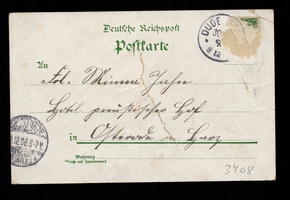 Deutsche Reichspost
Postkarte
An
Frl. Minna Jahn
Hotel preußischer Hof
in Osterode a Harz
Wohnung
(Straße und Hausnummer)
3408